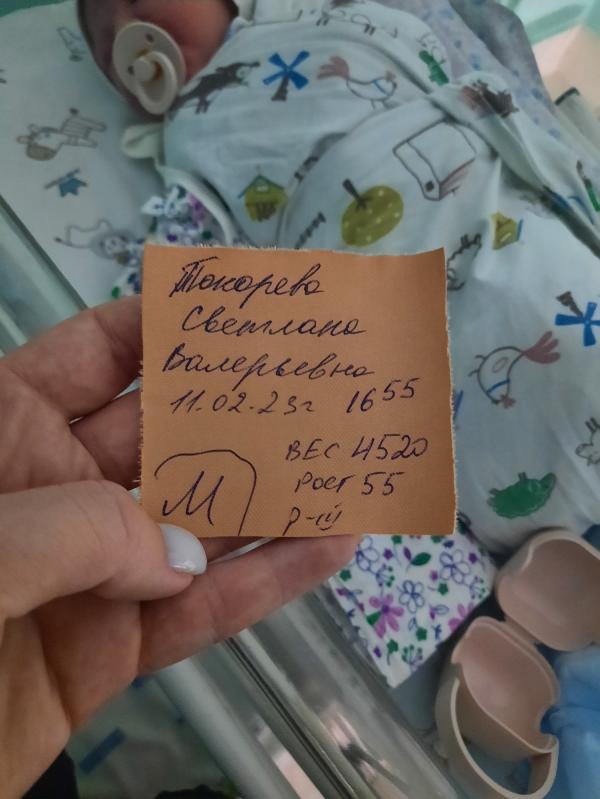 Токарева
Светлана
Валерьевна
11.02.23г 16 55
ВЕС 4520
Рост 55
М
р-ш